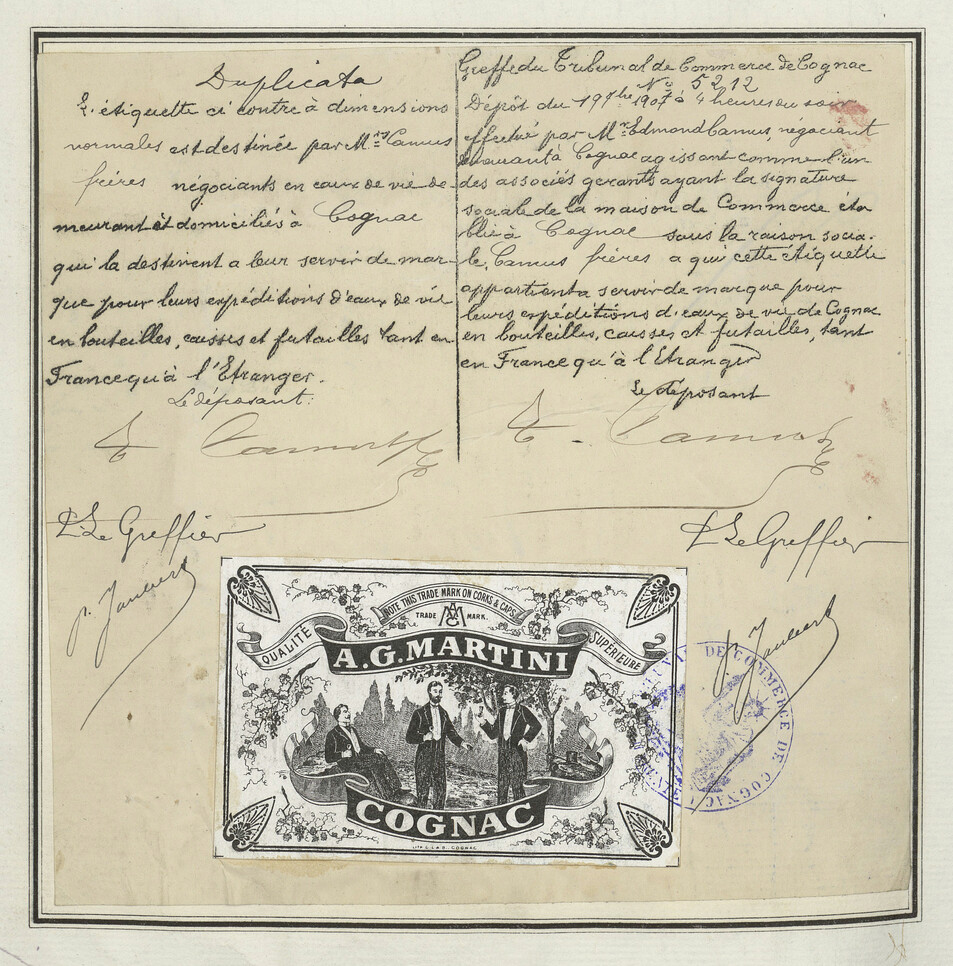 Duplicata
L'étiquette ci contre à dimensions
normales est destinée par M.rs Camus
frères négociants en eaux de vie de-
meurant et domiciliés à Cognac
qui la destinent a leur servir de mar-
que pour leurs expéditions d'eaux de vie
en bouteilles, caisses et futailles tant en
France qu'à l'Etranger.
Le déposant:
E. Camus
P. Le Greffier
Greffe du Tribunal de Commerce de Cognac
No 5212
Dépôt du 19 7bre 1907 à 4 heures du soir
effectué par Mr. Edmond Camus, négociant
demeurant à Cognac agissant comme l'un
des associés gerants ayant la signature
sociale de la maison de Commerce éta
blie à Cognac sous la raison socia-
le, Camus frères a qui cette étiquette
appartient a servir de marque pour
leurs expéditions d'eaux de vie de Cognac
en bouteilles, caisses et futailles, tant
en France qu'à l'Etranger
Le déposant
E. Camus
P. Le Greffier
NOTE THIS TRADE MARK ON CORKS & CAPS
TRADE MARK.
QUALITÉ SUPÉRIEURE
A.G. MARTINI
COGNAC
COGNAC
DE COMMERCE DE COGNAC